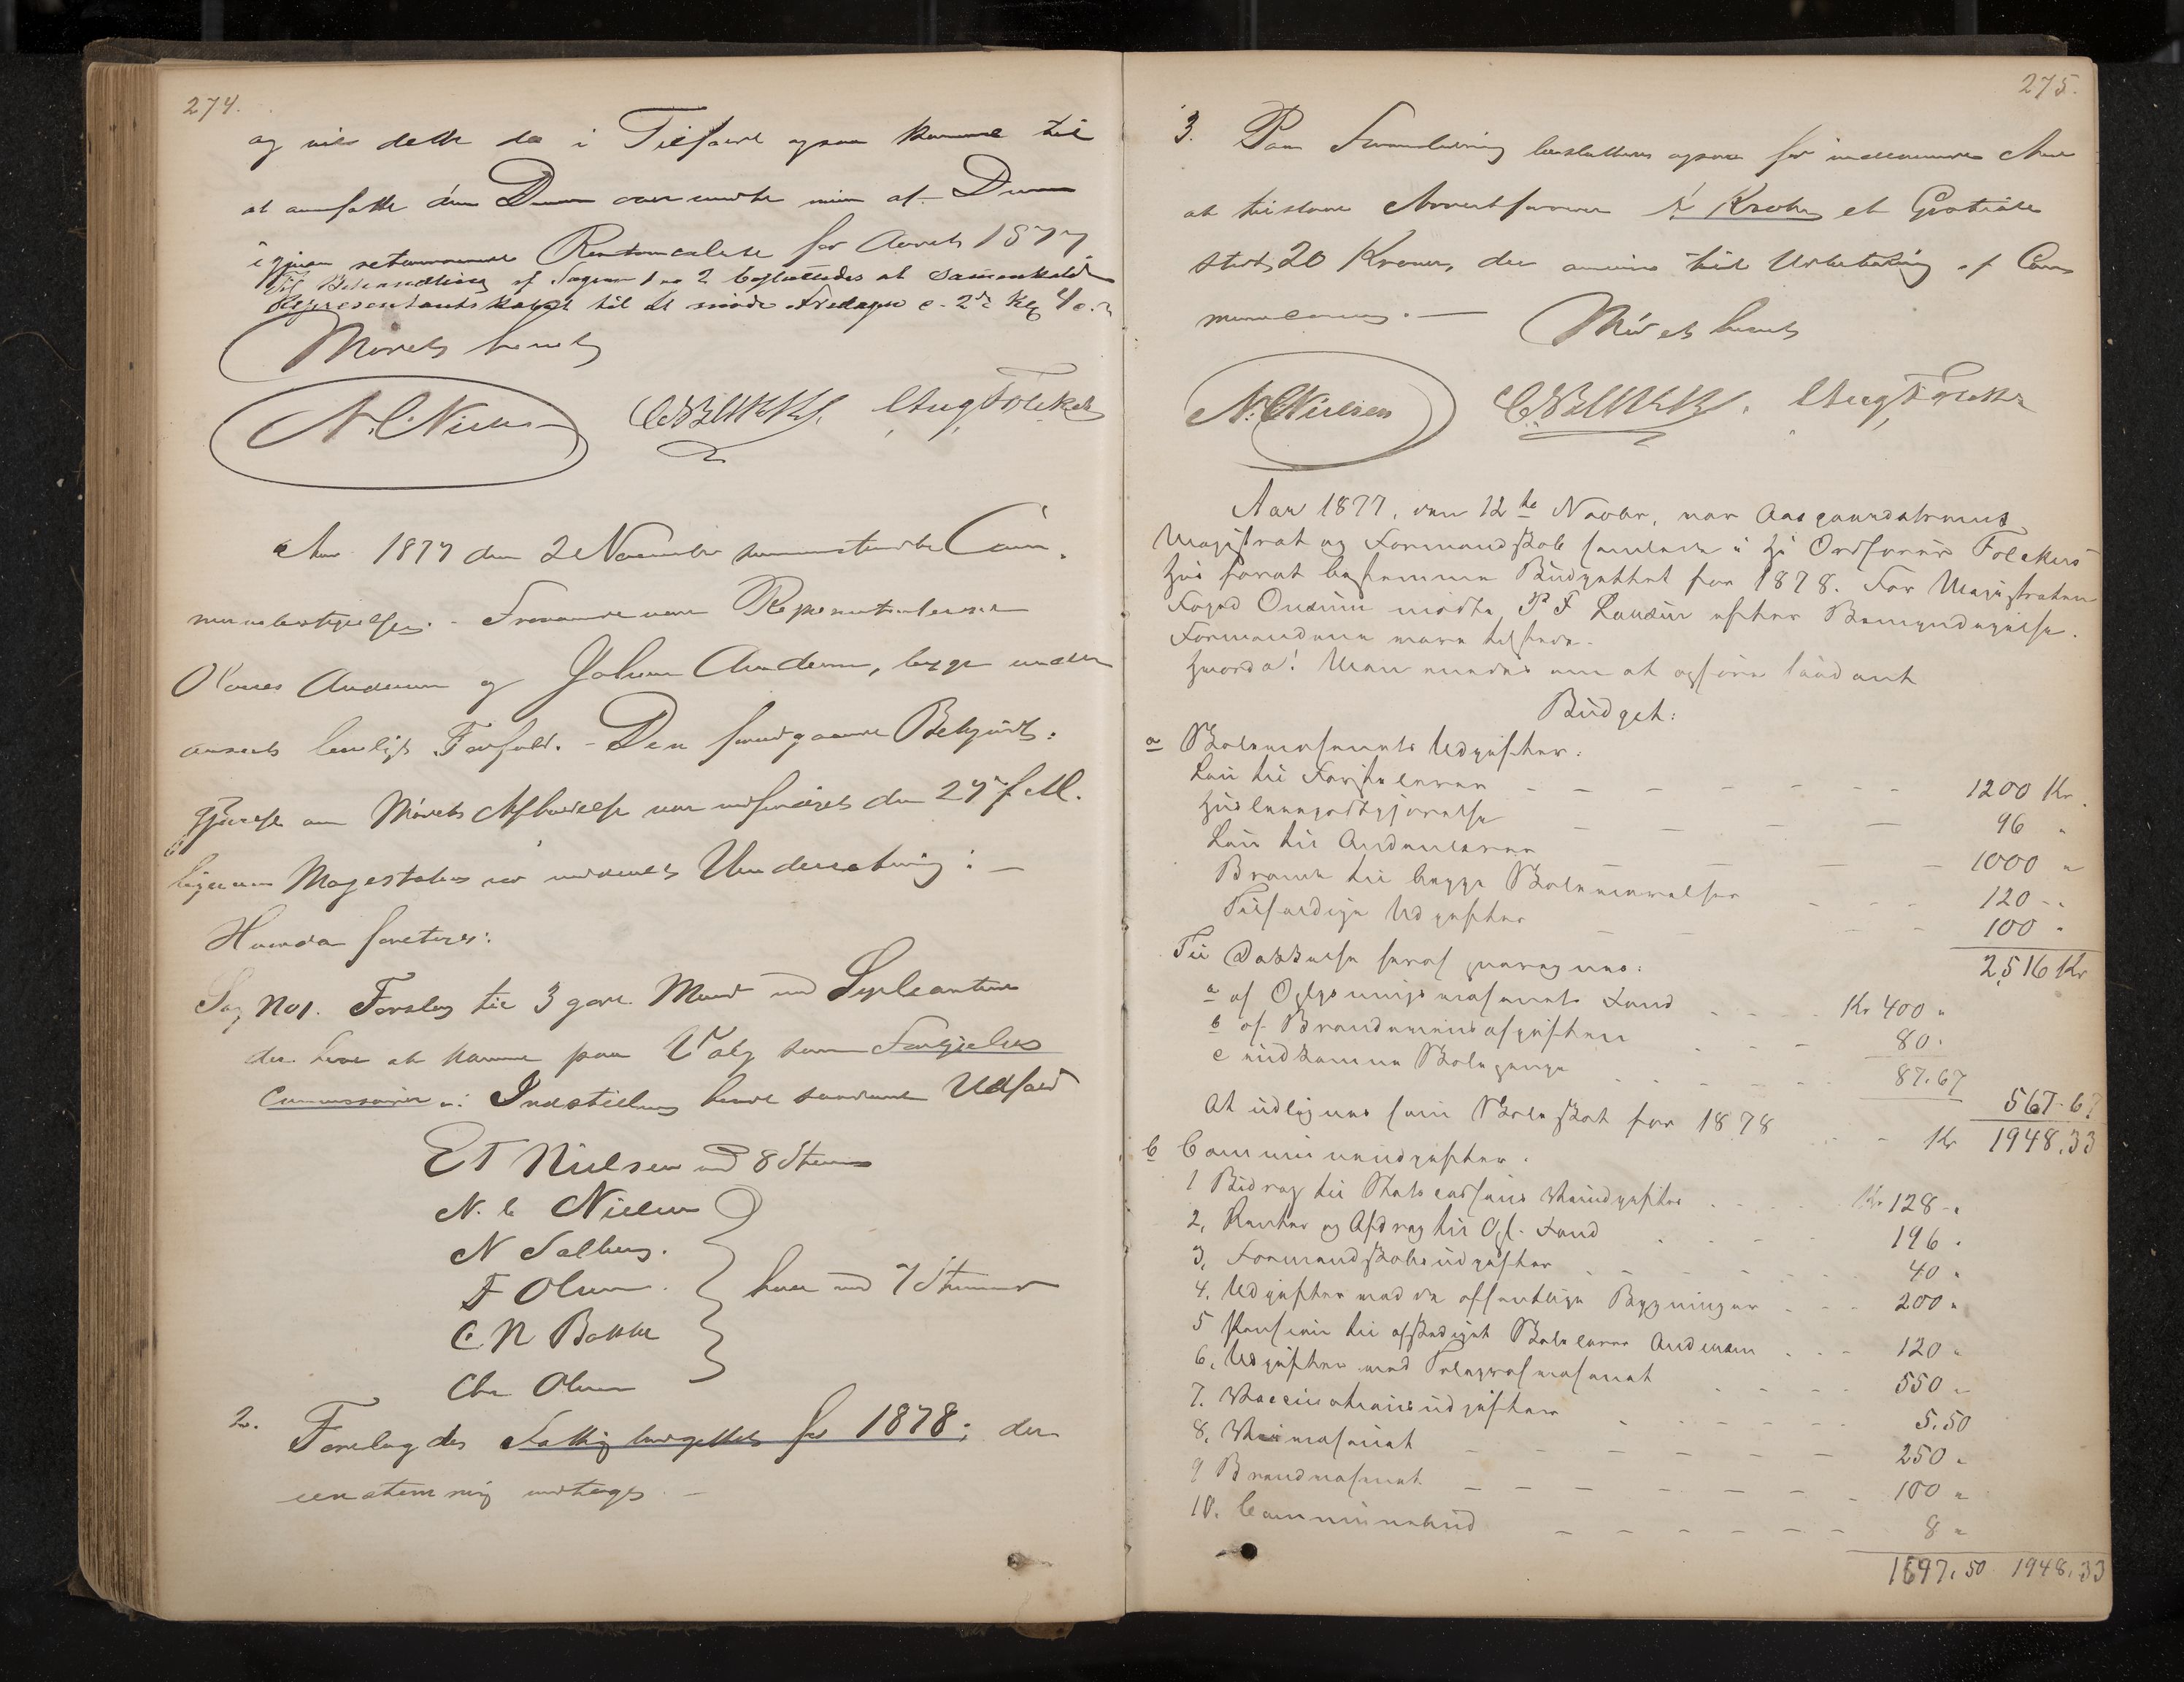 274.
og vil dette da i Tilfælde ogsaa komme til
at omfatte den Dem oversendte min af Dem
igjen Restanceliste for Aaret 1877
Til Behandling af Sagerne 1 og 2 besluttedes at sammenkalde
Representantskabet til et møde Fredagen d. 2de Kl 4 e.m
Mødet hævet
N. C. Nielsen Aug Folckers
Aar 1877 den 2 November Com-
munebestyrelsen. - Fraværende vare Repræsentanterne
Andersen og Johan Andersen, begge
lovligt Forfald. - Den foregaaende Bekjendt-
gjørelse om Mødets Afholdelse var den 27 f. M.
ligesom Magistraten var meddelt Underretning: —
Hvorda foretoges:
Sag No 1. Forslag til 3 gode Mænd med Supleanter
der have at komme paa Valg som Forligelses
Commissairer: Indstillingen havde saadant Udfald
E T Nielsen med 8 Stemmer
N. C. Nielsen
N Salberg.
F Olsen
C N Bakke
Chr Olsen
hver med 7 Stemmer
2. Forelagdes Fattigbudgettet for 1878; der
eenstemmig vedtages. —
275.
3. Paa Foranledning besluttedes ogsaa for indeværende Aar
at tilstaae Arrestforvarer Krohn et Gratiale
stort 20 Kroner, der anvises til Udbetaling af Com-
munecassen. — Mødet hævet
N. C. Nielsen Aug Folckers
Aar 1877, den 12te Novbr. var Aasgaardstrands
Magistrat og Formandskab samlede i Hr Ordfører Folckers
Huus forat bestemme Budgettet for 1878. For Magistraten
Foged mødte P F efter Bemyndigelse.
Formændene vare tilstede.
Hvorda! Man enedes om at opføre saadant
Budget:
a Skolevæsenets Udgifter:
Løn til Førstelærer - - - 1200 Kr.
Huusleiegodtgjørelse - - - 96 "
Løn til Andenlærer - - - 1000 "
Brænde til begge Skoleværelser - - - 120 - "
Tilfældige Udgifter - - - 100 "
2,516 Kr
Til Dækkelse heraf paaregnes:
a af Oplysningsvæsenets Fond - - - Kr 400 "
b af Brændeviinsafgiften - - - 80 "
c indkomne Skolepenge - - - 87.67
567.67
At udlignes som Skoleskat for 1878 - - Kr 1948.33
b Communeudgifter.
1 Bidrag til Statscassens Veiudgifter - - - Kr 128 - "
2, Renter og Afdrag til Opl. Fond - - - 196 "
3, Formandskabsudgifter - - - 40 "
4. Udgifter ved de offentlige Bygninger - - - 200 "
5 Pension til afskediget Skolelærer Andersen - - - 120 "
6, Udgifter ved Telegrafvæsenet - - - 550 "
7. Vaccinationsudgifter - - - 5.50
8, Veivæsenet - - - 250 "
9 Brandvæsenet - - - 100 "
10. Communebud - - - 8 "
1597.50 1948.33